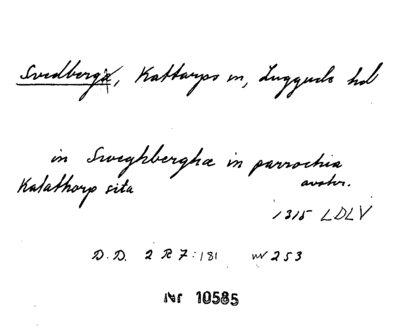 Svedberga, Kattarps sn, Luggude hd
in Sweghberghæ in parrochia
Katathorp sita avskr.
1315 LDLV
D.D. 2 R 7:181 nr 253
Nr 10585